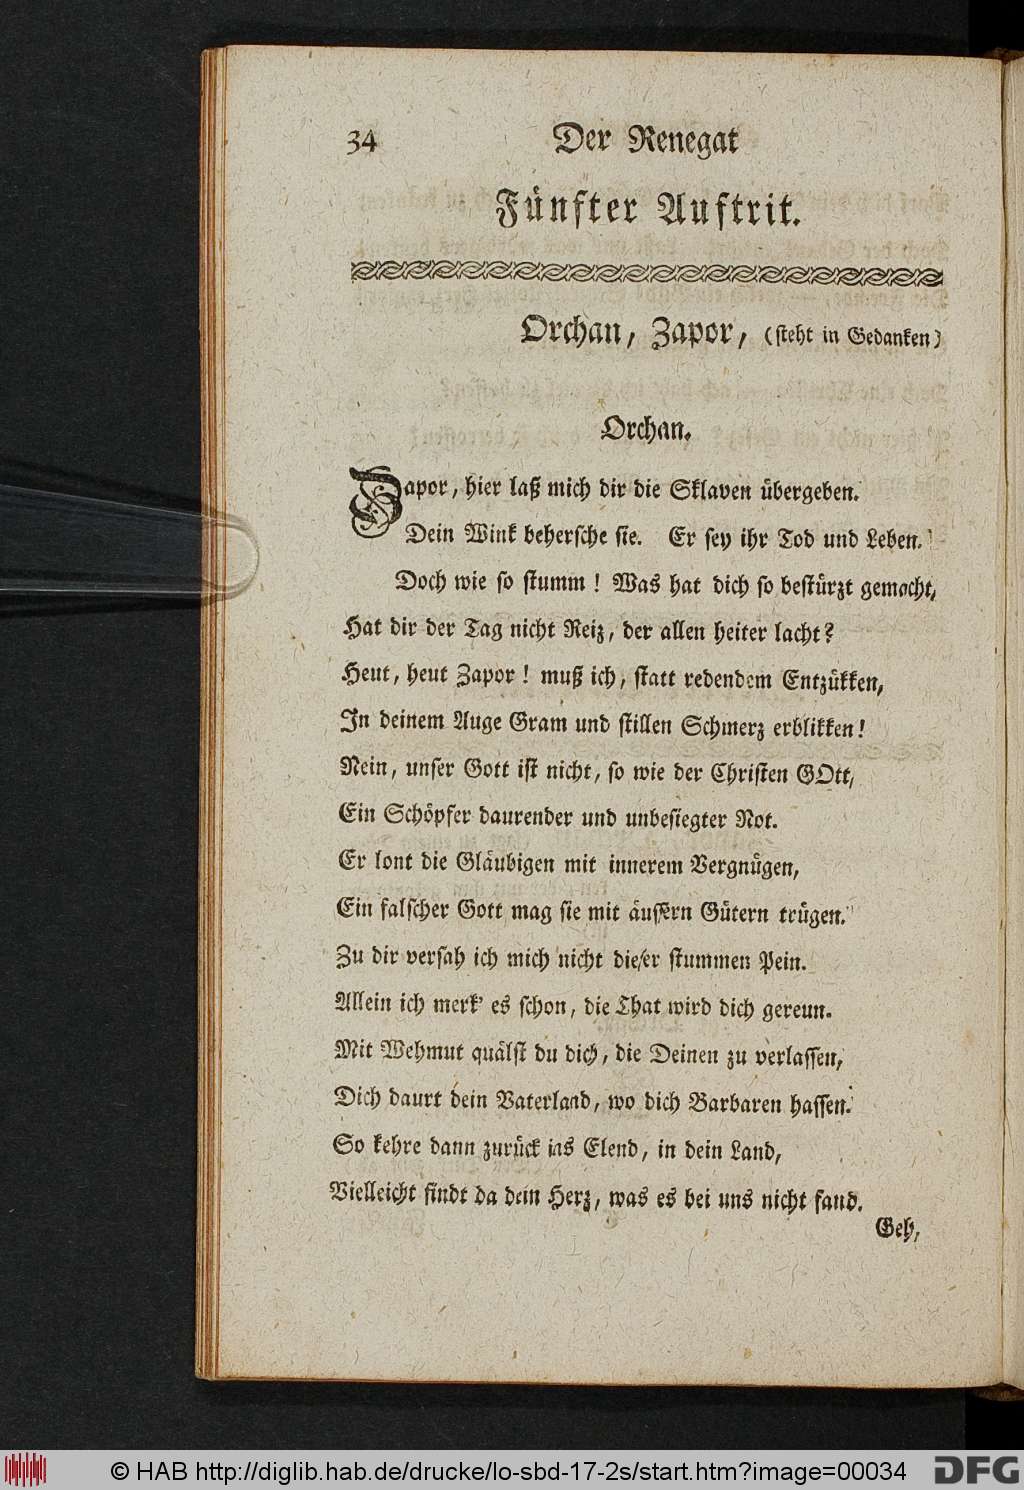 34
Der Renegat
Fünfter Auftrit.
Orchan, Zapor, (steht in Gedanken)
Orchan.
Zapor, hier laß mich dir die Sklaven übergeben.
Dein Wink behersche sie. Er sey ihr Tod und Leben.
Doch wie so stumm! Was hat dich so bestürzt gemacht,
Hat dir der Tag nicht Reiz, der allen heiter lacht?
Heut, heut Zapor! muß ich, statt redendem Entzükken,
In deinem Auge Gram und stillen Schmerz erblikken!
Nein, unser Gott ist nicht, so wie der Christen GOtt,
Ein Schöpfer daurender und unbesiegter Not.
Er lont die Gläubigen mit innerem Vergnügen,
Ein falscher Gott mag sie mit äussern Gütern trügen.
Zu dir versah ich mich nicht dieser stummen Pein.
Allein ich merk' es schon, die That wird dich gereun.
Mit Wehmut quälst du dich, die Deinen zu verlassen,
Dich daurt dein Vaterland, wo dich Barbaren hassen.
So kehre dann zurück ins Elend, in dein Land,
Vielleicht findt da dein Herz, was es bei uns nicht fand.
Geh,
© HAB http://diglib.hab.de/drucke/lo-sbd-17-2s/start.htm?image=00034
DFG